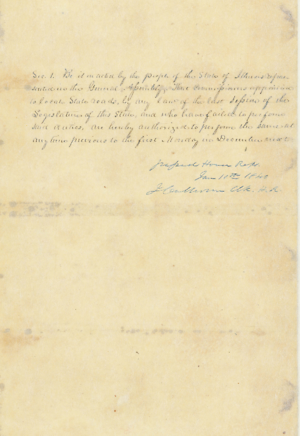 Sec 1. Be it enacted by the people of the State of Illinois repre-
sented in the General Assembly, That Commissioners appointed
to locate State roads, by any law of the last Session of the
Legislature of this State, and who have failed to perform
said duties, are hereby authorized to perform the same at
any time previous to the first Monday in December next
Passed House Reps
Jan 11th
Clk. H.R.